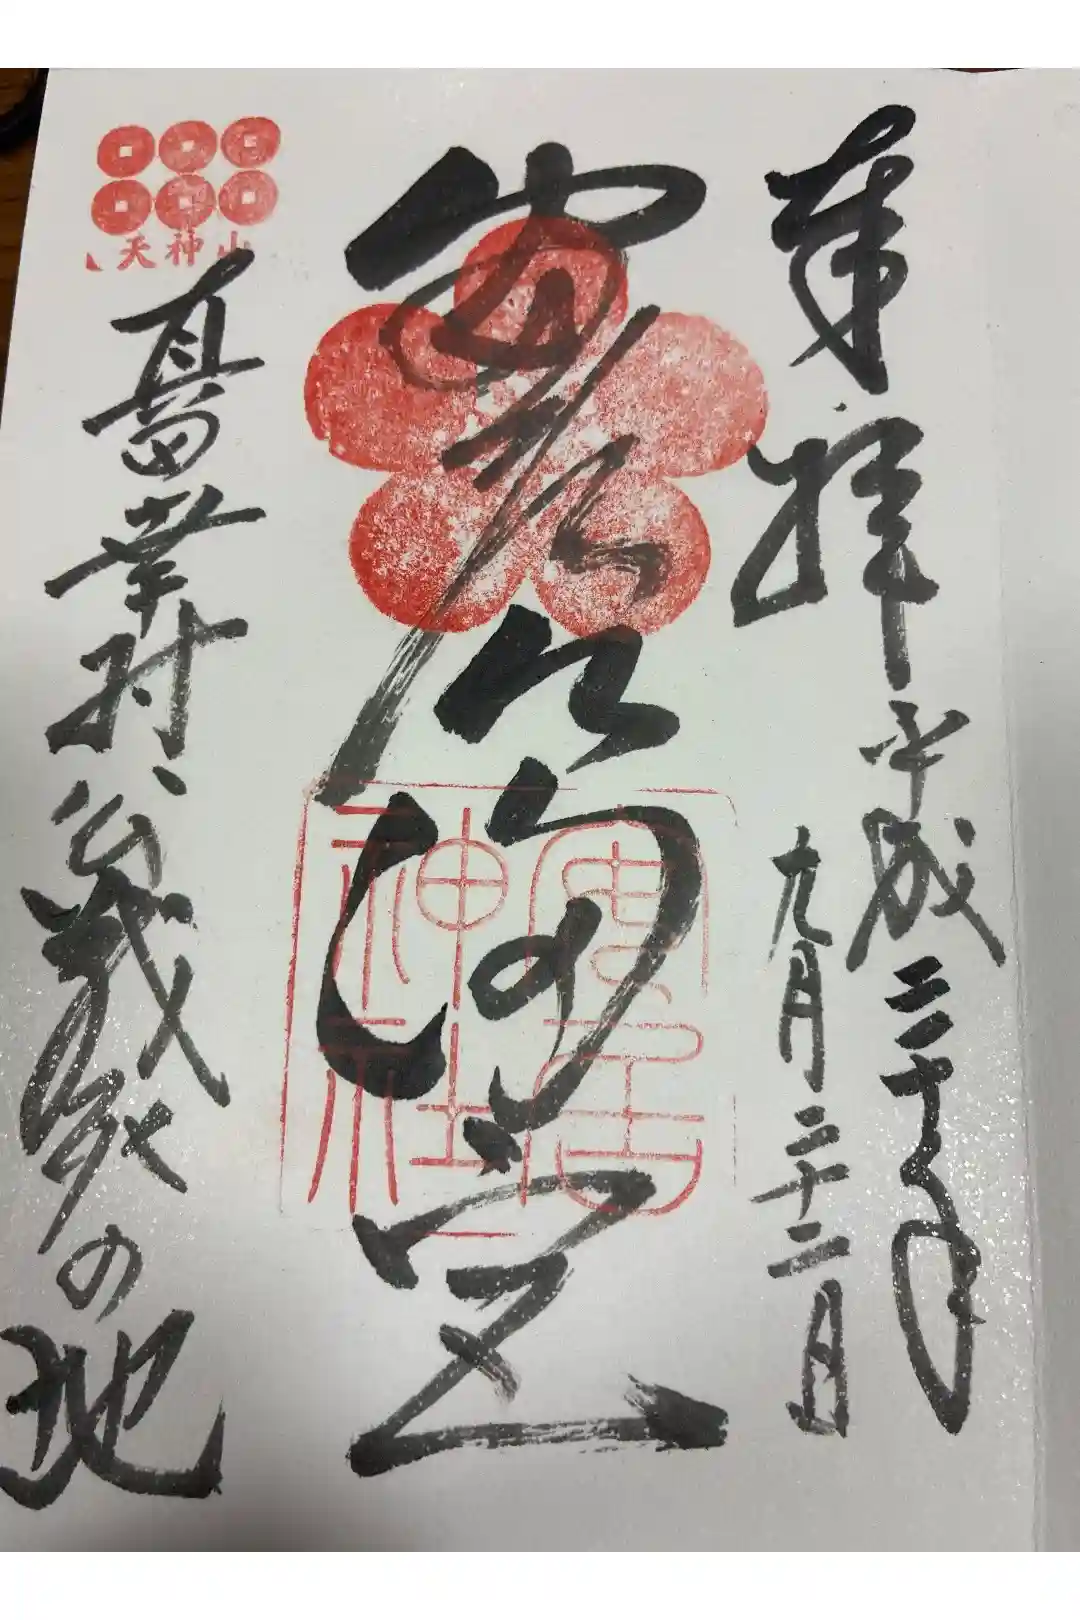 奉拝
平成三十年
九月二十二日
安居神社
天神山
真田幸村公戦死の地